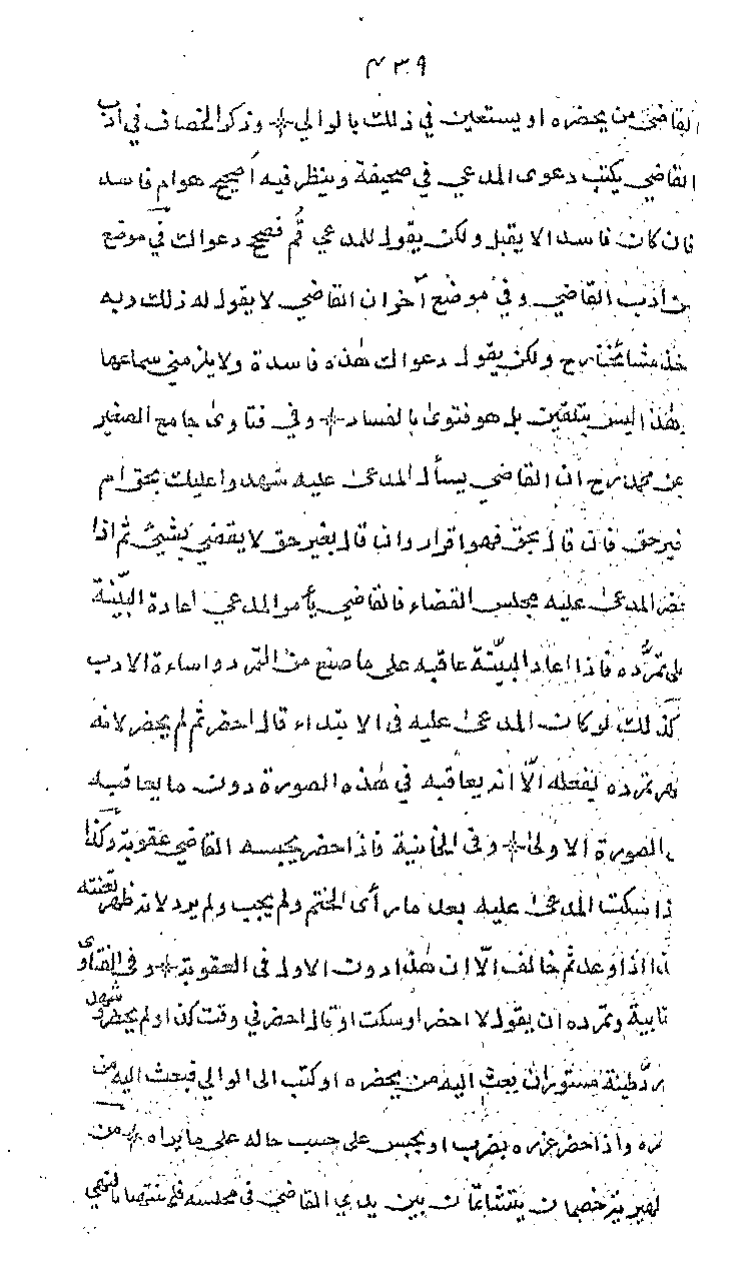 ٤٣٩
القاضي من يحضره او يستعين في ذلك بالوالي * وذكر الخصاف في ادب
القاضي يكتب دعوى المدعي في صحيفة وينظر فيه أصحيح هوام فاسد
فان كان فاسد الا يقبل ولكن يقول للمدعي قُم فصحح دعواك في موضع
من ادب القاضي وفي موضع آخر ان القاضي لا يقول له ذلك وبه
اخذ مشائخنا رح ولكن يقول دعواك هذه فاسدة ولا يلزمني سماعها
وهذا ليس بتلقين بل هو فتوى بالفساد * وفي فتاوى جامع الصغير
عن محمد رح ان القاضي يسأل المدعى عليه شهدوا عليك بحق ام
بغير حق فان قال بحق فهو اقرار وان قال بغير حق لا يقضي بشيئ ثم اذا
حضر المدعى عليه مجلس القضاء فالقاضي يأمر المدعي اعادة البيّنة
على تمرّده فاذا اعاد البيّنة عاقبه على ما صنع من التمرد واساءة الادب
كذلك لو كان المدعى عليه في الابتداء قال احضر ثم لم يحضر لانه
ظهر تمرده بفعله الّا انه يعاقبه في هذه الصورة دون ما يعاقبه
في الصورة الاولى * وفي الخانية فاذا حضر يحبسه القاضي عقوبة وكذا
اذا سكت المدعى عليه بعد ما رأى الختم ولم يجب ولم يرد لانه ظهر تعنته
كذا اذا وعد ثم خالف الّا ان هذا دون الاول في العقوبة * وفي الفتاوى
العتابية وتمرده ان يقول لا احضر او سكت او قال احضر في وقت كذا ولم يحضر وشهد
بعث اليه من يحضره او كتب الى الوالي فبعث اليه من
واذا حضر عزره بضرب او يحبس على حسب حاله على ما يراه * من
خصمان يتشاتمان بين يدي القاضي في مجلسه فلم ينتهيا بالنهي